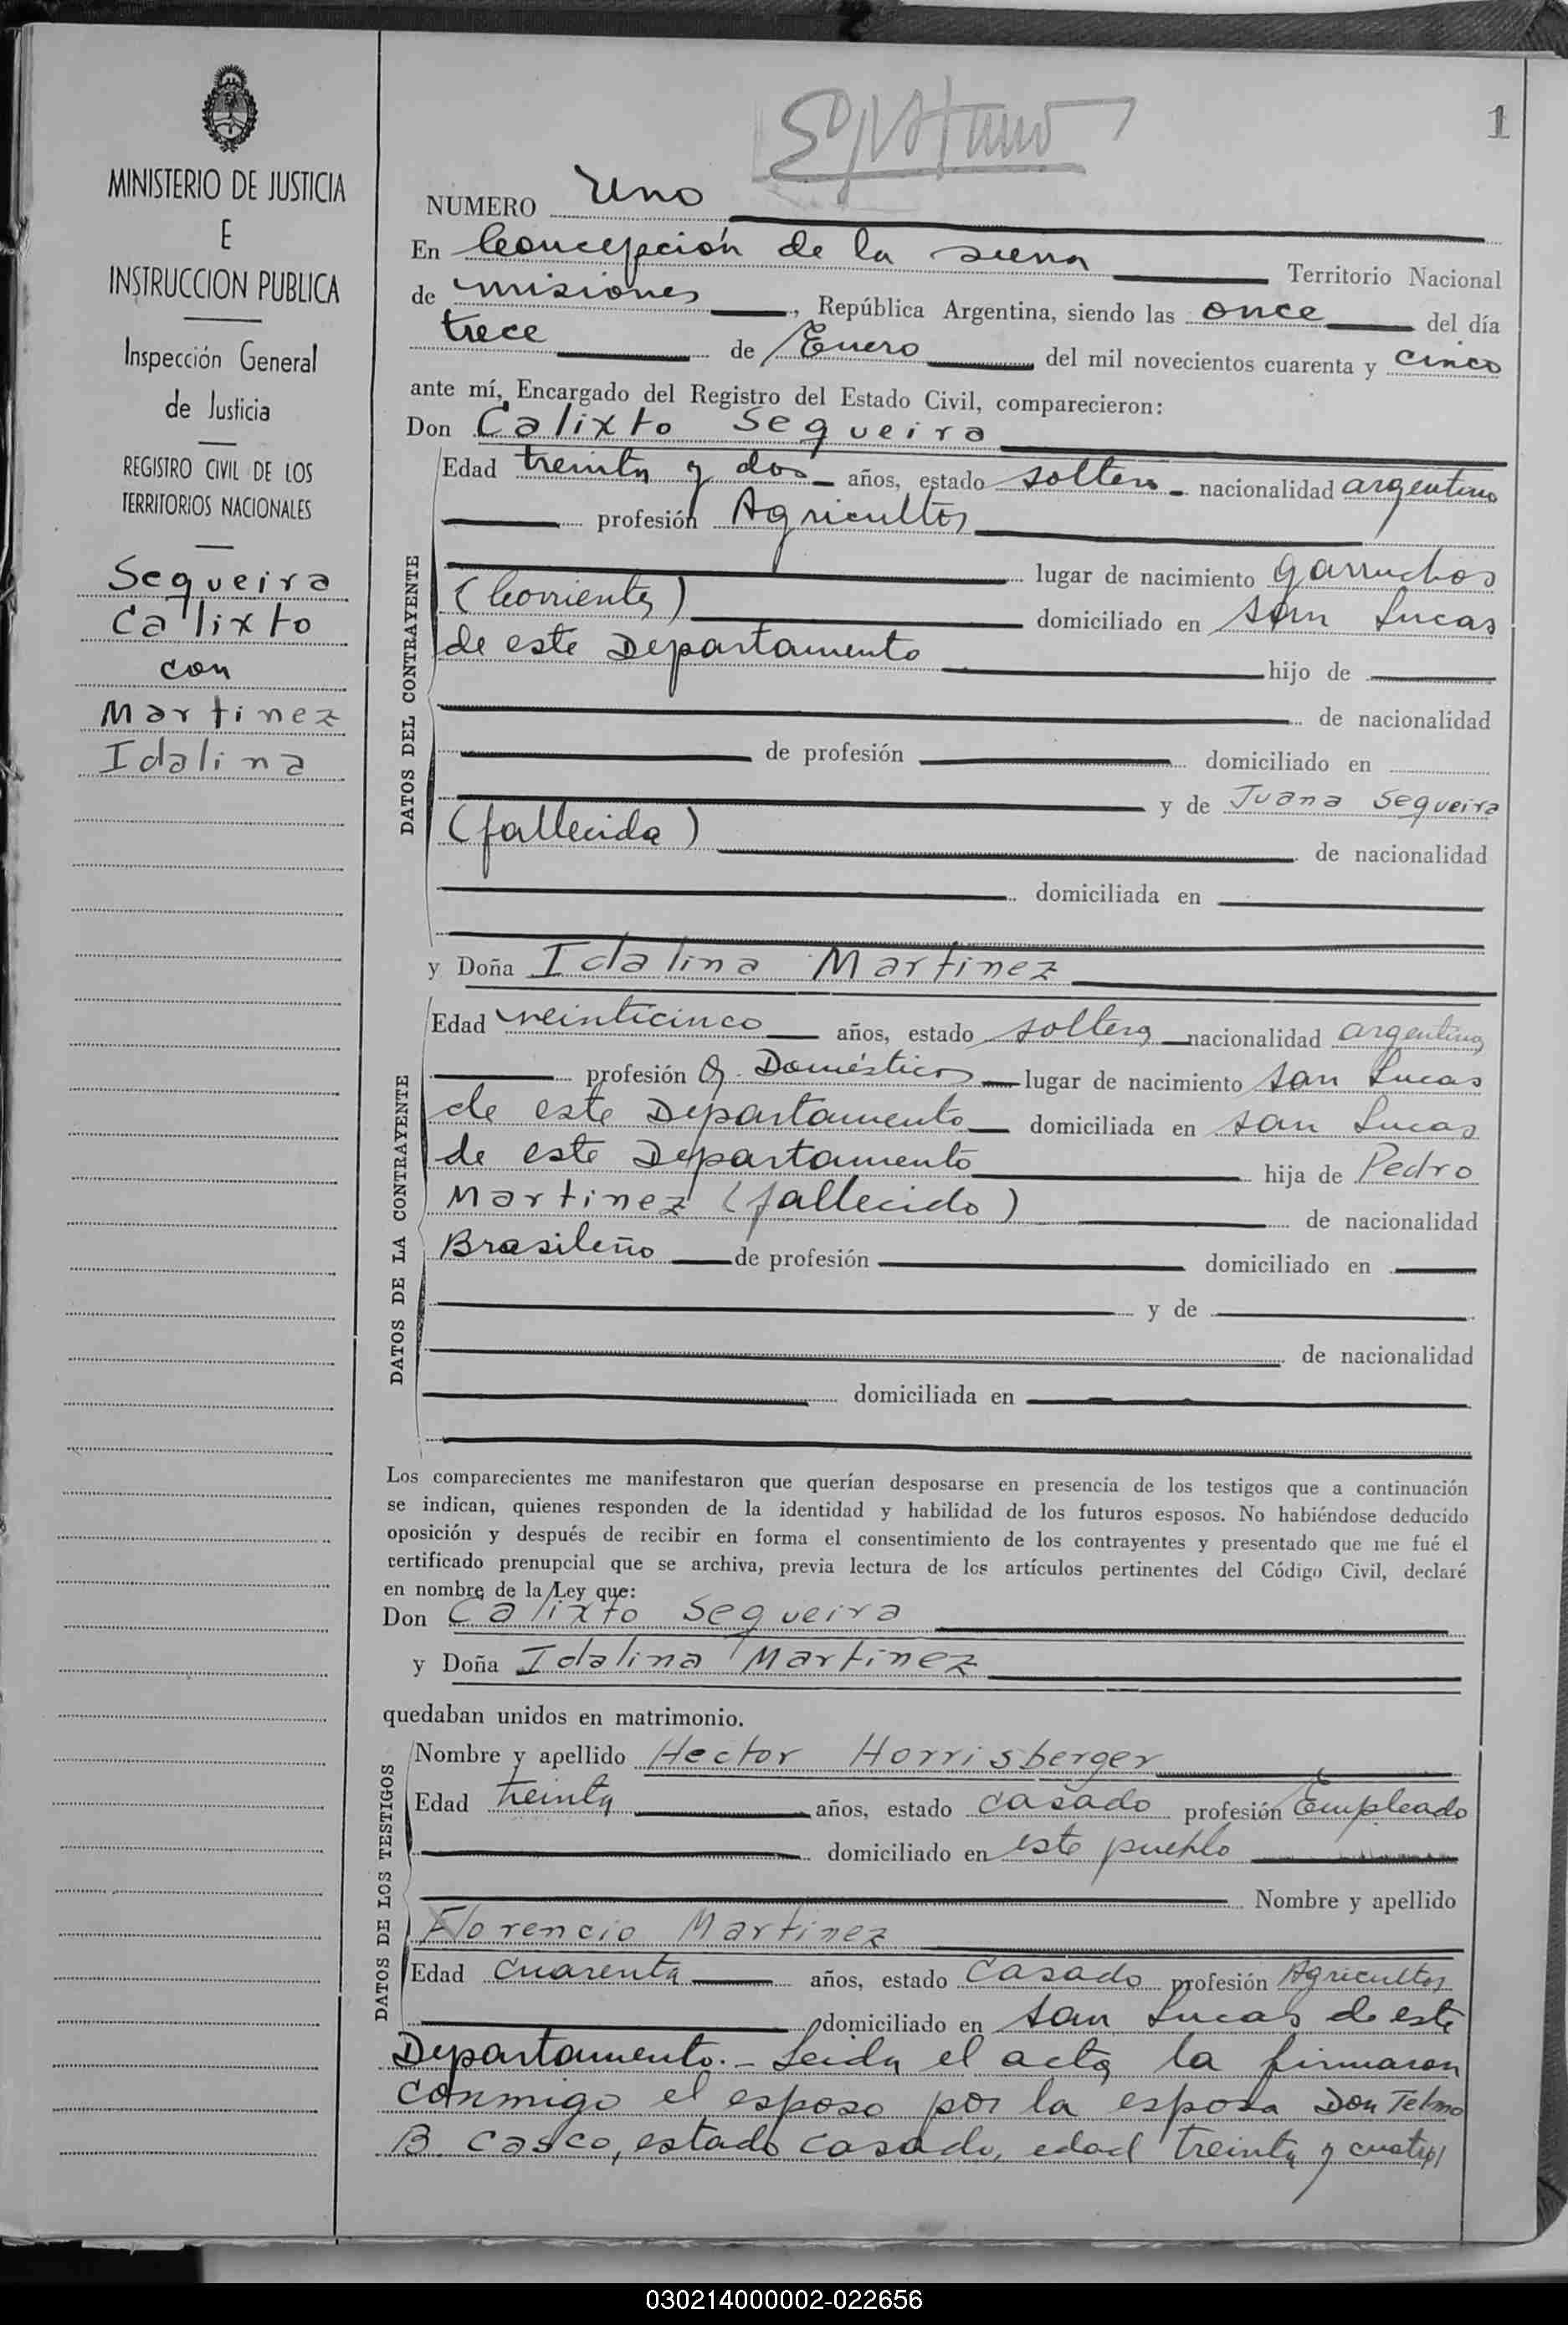 1
MINISTERIO DE JUSTICIA
E
INSTRUCCION PUBLICA
Inspección General
de Justicia
REGISTRO CIVIL DE LOS
TERRITORIOS NACIONALES
Sequeira
Calixto
con
Martinez
Idalina
NUMERO Uno
En Concepción de la sierra Territorio Nacional
de misiones, República Argentina, siendo las once del día
trece de Enero del mil novecientos cuarenta y cinco
ante mí, Encargado del Registro del Estado Civil, comparecieron:
Don Calixto Sequeira
DATOS DEL CONTRAYENTE
Edad treinta y dos años, estado soltero nacionalidad argentino
profesión Agricultor
lugar de nacimiento Garruchos
(Corrientes) domiciliado en San Lucas
de este Departamento hijo de
de nacionalidad
de profesión domiciliado en
y de Juana Sequeira
(fallecida) de nacionalidad
domiciliada en
y Doña Idalina Martinez
DATOS DE LA CONTRAYENTE
Edad veinticinco años, estado soltera nacionalidad argentina
profesión Q. Domésticos lugar de nacimiento San Lucas
de este Departamento domiciliada en San Lucas
de este Departamento hija de Pedro
Martinez (fallecido) de nacionalidad
Brasileño de profesión domiciliado en
y de
de nacionalidad
domiciliada en
Los comparecientes me manifestaron que querían desposarse en presencia de los testigos que a continuación
se indican, quienes responden de la identidad y habilidad de los futuros esposos. No habiéndose deducido
oposición y después de recibir en forma el consentimiento de los contrayentes y presentado que me fué el
certificado prenupcial que se archiva, previa lectura de los artículos pertinentes del Código Civil, declaré
en nombre de la Ley que:
Don Calixto Sequeira
y Doña Idalina Martinez
quedaban unidos en matrimonio.
DATOS DE LOS TESTIGOS
Nombre y apellido Hector Horrisberger
Edad treinta años, estado casado profesión Empleado
domiciliado en este pueblo
Nombre y apellido
Florencio Martinez
Edad cuarenta años, estado casado profesión Agricultor
domiciliado en San Lucas de este
Departamento.- Leida el acta, la firmaron
conmigo el esposo por la esposa Don Telmo
B Casco, estado casado, edad treinta y cuatro
030214000002-022656